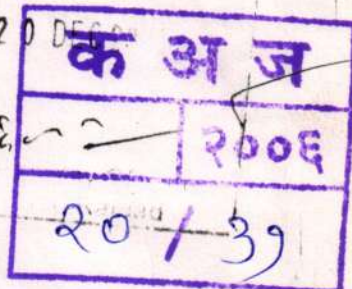 20 DEC
क अ ज
२००६
२० / ३१